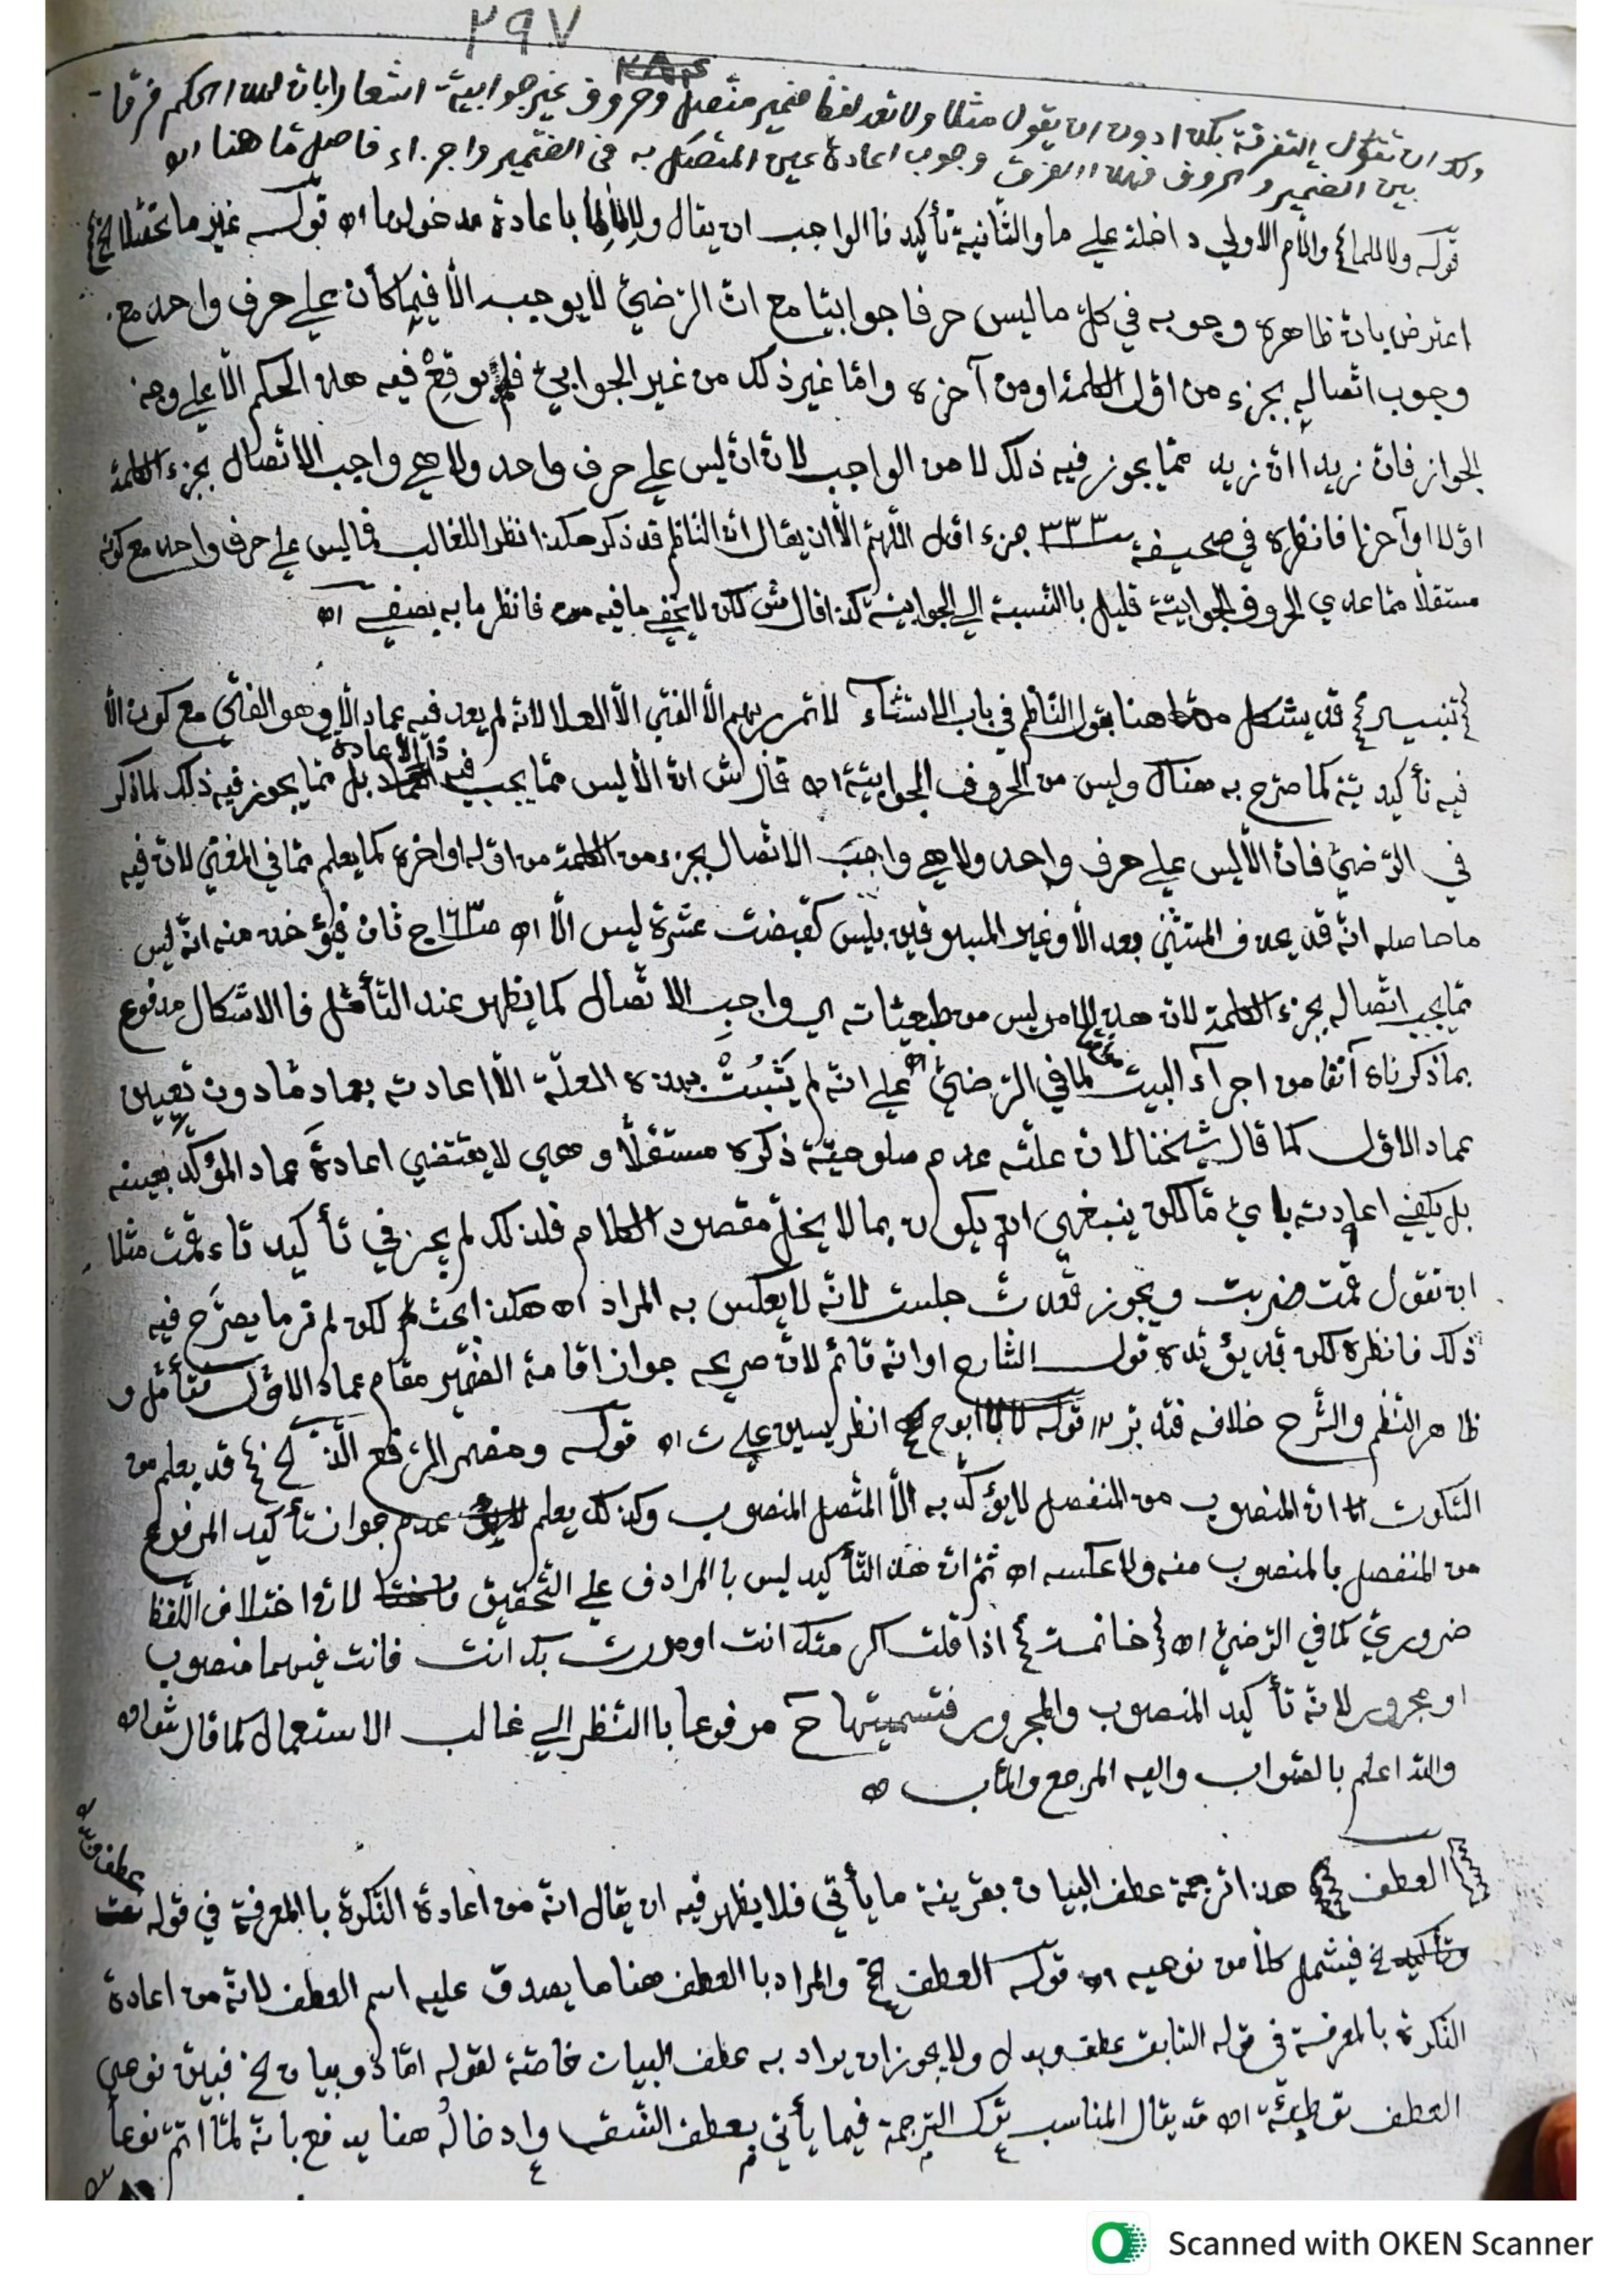 ٢٩٧
ولك ان تقول التفرقة بكذا دون ان يقول مثلا ولا تعد لفظ ضمير متصل وحروف غير جوابية اشعارا بان لهذا الحكم فرقا
بين الضمير والحروف فهذا الفرق وجوب اعادة عين المتصل به في الضمير واجزاء فاصل ما هنا اه
قوله ولا للما واللام الاولى داخلة على ما والثانية تأكيد فالواجب ان يقال ولا لما لما باعادة مدخولها اه قوله غير ما تحصلا الخ
اعترض بان ظاهره وجوبه في كل ما ليس حرفا جوابيا مع ان الرضي لا يوجبه الا فيما كان على حرف واحد مع
وجوب اتصاله بجزء من اول الكلمة او من آخره واما غير ذلك من غير الجوابي فلم يوقع فيه هذا الحكم الا على وجه
الجواز فان زيدا ان زيد مما يجوز فيه ذلك لا من الواجب لان ان ليس على حرف واحد ولا هي واجب الاتصال بجزء الكلمة
اولا او آخرا فانظره في صحيفة ٣٣٣ جزء اول اللهم الا ان يقال ان الناظم قد ذكر هكذا نظرا للغالب فما ليس على حرف واحد مع كونه
مستقلا مما عدى الحروف الجوابية قليل بالنسبة الى الجوابية كذا قال ش لكن لا يخفى ما فيه فانظر ما به يصفى اه
تنبيه قد يشكل ما هنا بقول الناظم في باب الاستثناء لا تمرر بهم الا الفتى الا العلا لانه لم يعد فيه عماد الا وهو الفتى مع كون الا
فيه تأكيدية كما صرح به هناك وليس من الحروف الجوابية اه قال ش ان الا ليس مما يجب فيه ذا الاعادة بل مما يجوز فيه ذلك لما ذكر
في الرضي فان الا ليس على حرف واحد ولا هي واجب الاتصال بجزء من الكلمة من اوله او اخره كما يعلم مما في المغني لان فيه
ما حاصله انه قد يحذف المستثنى بعد الا وغير المسبوقين بليس كقبضت عشرة ليس الا اه ص١٦٣ ج ثان فيؤخذ منه انه ليس
مما يجب اتصاله بجزء الكلمة لان هذا الامر ليس من طبعيات اي واجب الاتصال كما يظهر عند التأمل فالاشكال مدفوع
بما ذكرناه آنفا من اجراء البيت لما في الرضي اه على انه لم يثبت بهذه العلة الا اعادته بعماد ما دون تعيين
عماد الاول كما قال شيخنا لان علته عدم صلوحية ذكره مستقلا وهي لا يقتضي اعادة عماد المؤكد بعينه
بل يكفي اعادته باي ما لكن ينبغي ان يكون بما لا يخل مقصود الكلام فلذلك لم يجز في تأكيد تاء قمت مثلا
ان تقول قمت ضربت ويجوز قعدت جلست لانه لا يعكس به المراد اه هكذا بحث لكن لم نر ما يصرح فيه
ذلك فانظره لكن قد يؤيده قول الشارح او انه قائم لان صريحه جواز اقامة الضمير مقام عماد الاول فتأمل و
ظاهر النظم والشرح خلافه فتدبر اه قوله لا لا ابوح الخ انظر يسين على ت اه قوله ومضمر الرفع الذ الخ قد يعلم من
السكوت ان المنصوب من المنفصل لا يؤكد به الا المتصل المنصوب وكذلك يعلم عدم جواز تأكيد المرفوع
من المنفصل بالمنصوب منه ولا عكسه اه ثم ان هذا التأكيد ليس بالمرادف على التحقيق لان اختلاف اللفظ
ضروري كما في الرضي اه خاتمة اذا قلت اكرمتك انت او مررت بك انت فانت فيهما منصوب
او مجرور لانه تأكيد المنصوب والمجرور فتسميتها ح مرفوعا بالنظر الى غالب الاستعمال كما قال ش اه
والله اعلم بالصواب واليه المرجع والمآب اه
العطف هذا ترجمة عطف البيان بقرينة ما يأتي فلا يظهر فيه ان يقال انه من اعادة النكرة بالمعرفة في قوله عطف
الخ فيشمل كلا من نوعيه اه قوله العطف الخ والمراد بالعطف هنا ما يصدق عليه اسم العطف لانه من اعادة
النكرة بالمعرفة في قوله السابق عطف وبدل ولا يجوز ان يراد به عطف البيان خاصة لقوله اما ذو بيان الخ فبين نوعي
العطف توطئة اه قد يقال المناسب ترك الترجمة فيما يأتي بعطف النسق وادخاله هنا يدفع بانه لما اتم نوعا
Scanned with OKEN Scanner